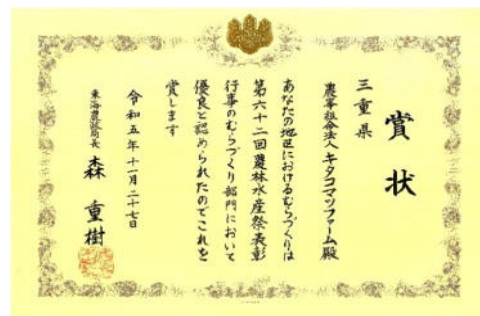 賞状
三重県
農事組合法人キタコマツファーム殿
あなたの地区におけるむらづくりは
第六十二回農林水産祭表彰
行事のむらづくり部門において
優良と認められたのでこれを
賞します
令和五年十一月二十七日
東海農政局長 森重樹